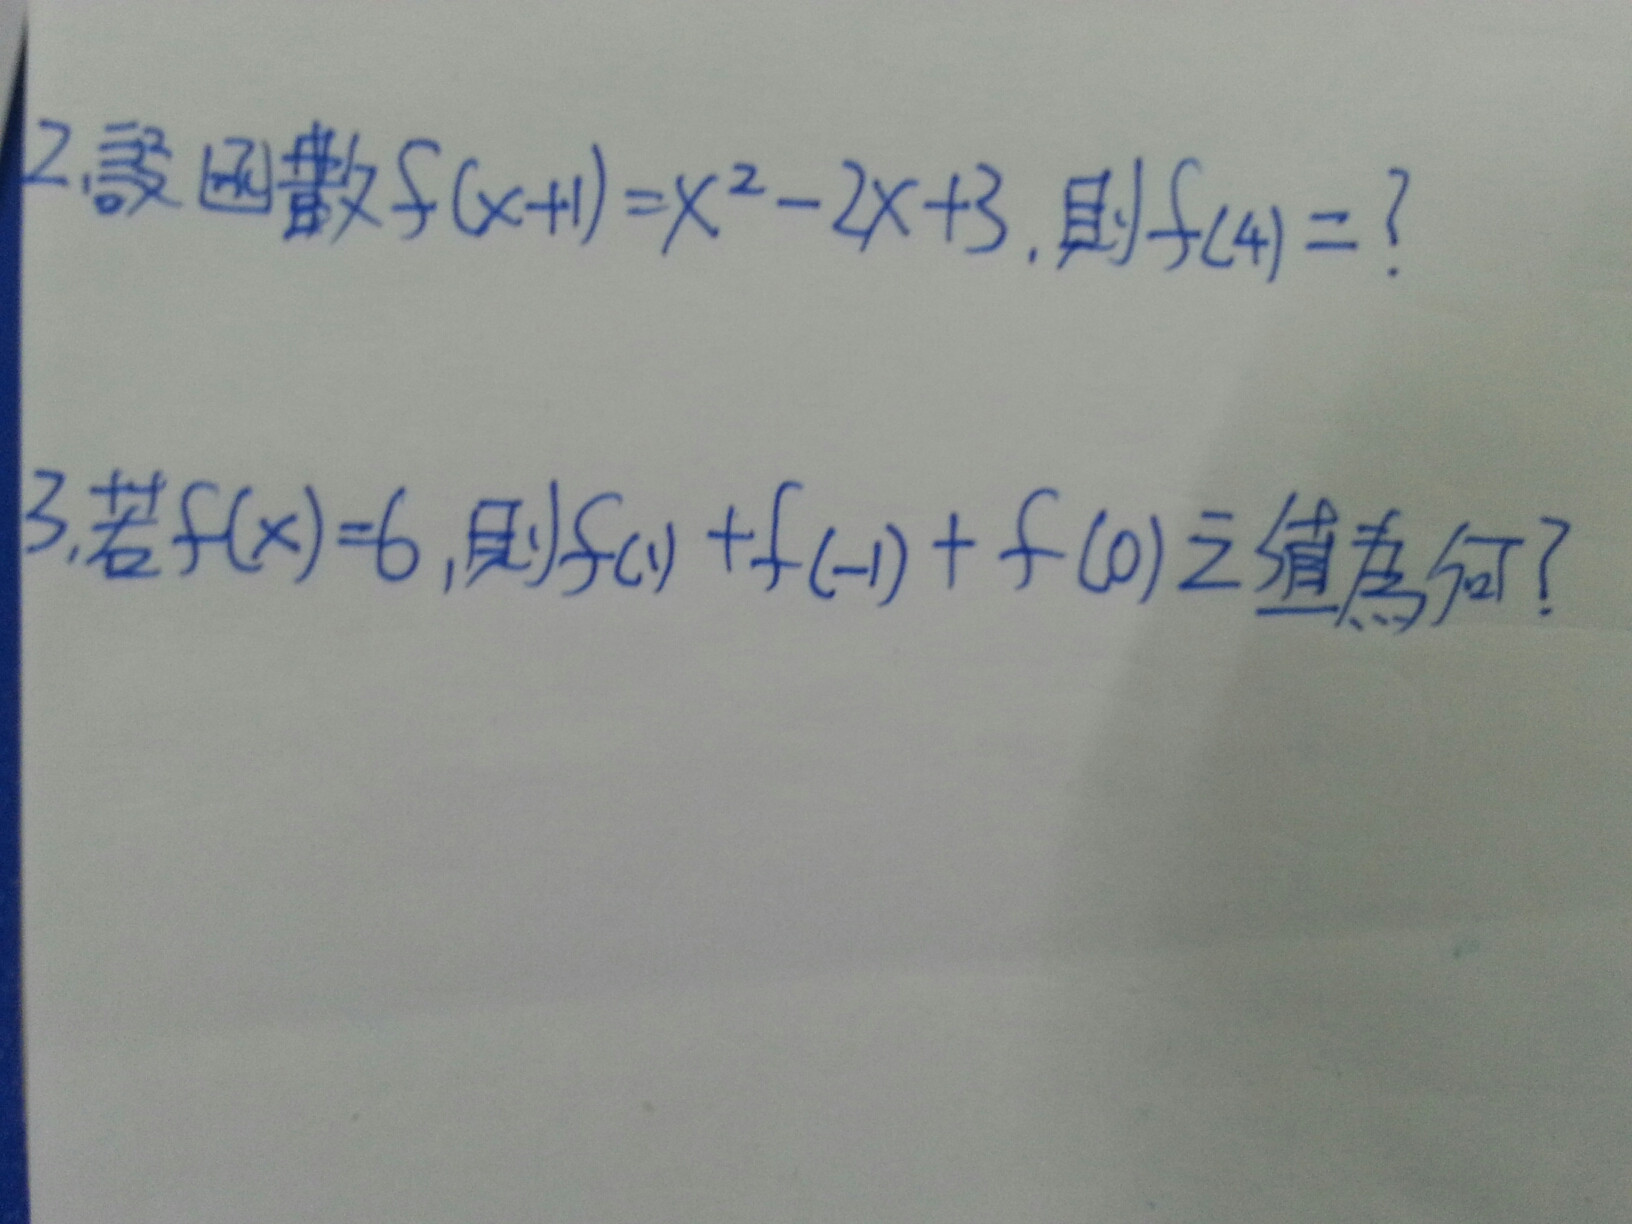 2.設函數f(x+1)=x²-2x+3,則f(4)=?
3.若f(x)=6,則f(1)+f(-1)+f(0)之值為何?